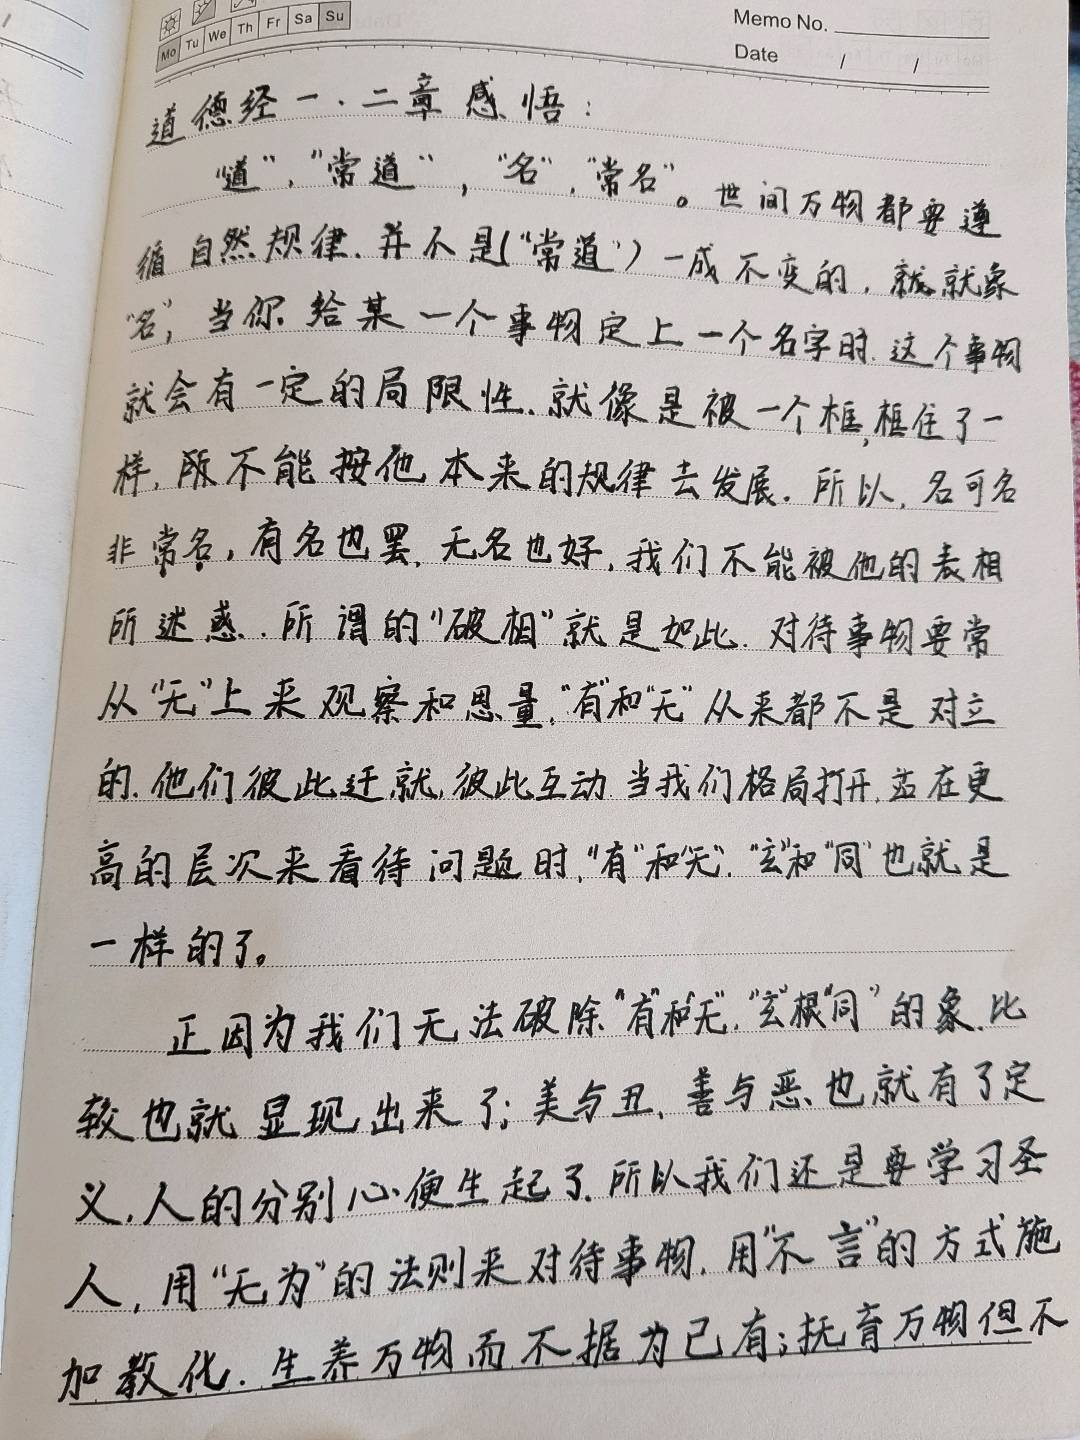 Mo Tu We Th Fr Sa Su
Memo No.
Date / /
道德经一、二章感悟：
"道"，"常道"，"名"，"常名"。世间万物都要遵
循自然规律，并不是("常道")一成不变的，就就象
"名"，当你给某一个事物定上一个名字时，这个事物
就会有一定的局限性，就像是被一个框，框住了一
样，不能按他本来的规律去发展。所以，名可名
非常名，有名也罢，无名也好，我们不能被他的表相
所迷惑。所谓的"破相"就是如此。对待事物要常
从"无"上来观察和思量，"有"和"无"从来都不是对立
的，他们彼此迁就，彼此互动，当我们格局打开，站在更
高的层次来看待问题时，"有"和"无"，"玄"和"同"也就是
一样的了。
正因为我们无法破除"有"和"无"，"玄"根"同"的象，比
较也就显现出来了；美与丑，善与恶也就有了定
义，人的分别心便生起了，所以我们还是要学习圣
人，用"无为"的法则来对待事物，用"不言"的方式施
加教化。生养万物而不据为己有；抚育万物但不